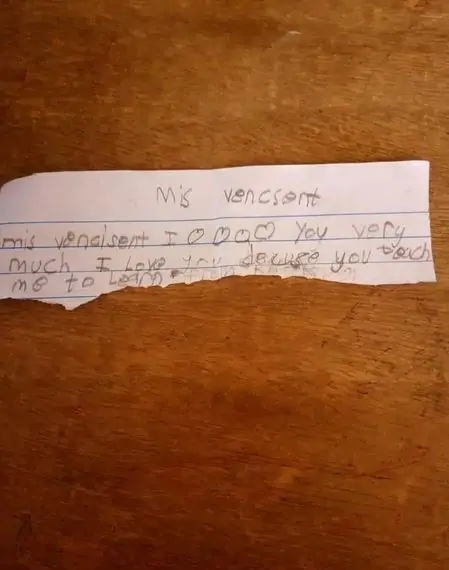 Mis vencsent
mis vencisent I you very
much I Love you becuse you teach
me to Learn